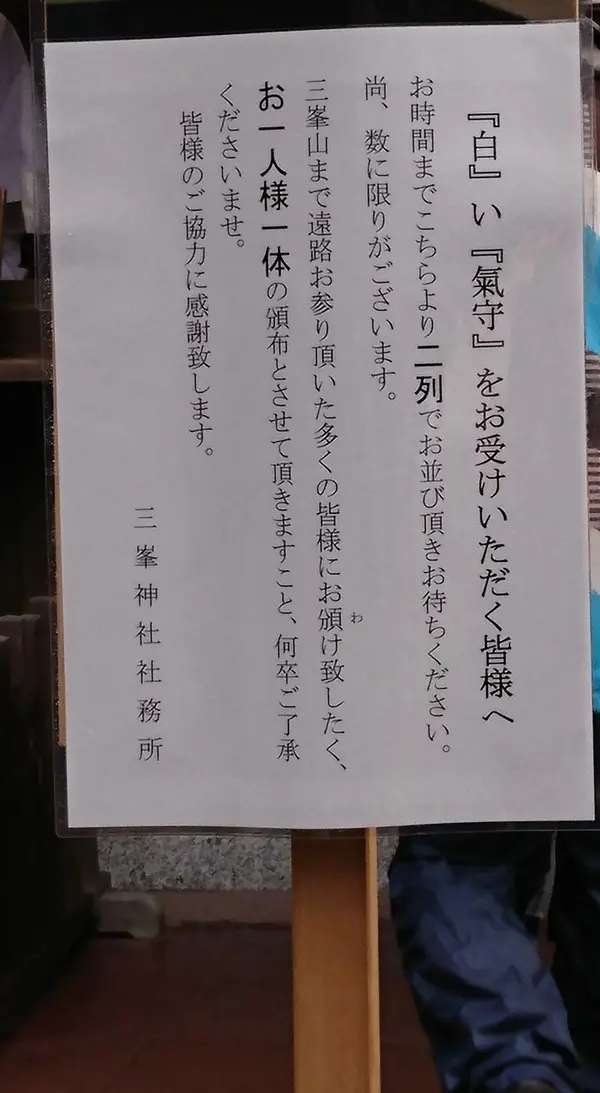 『白』い『氣守』をお受けいただく皆様へ
お時間までこちらより二列でお並び頂きお待ちください。
尚、数に限りがございます。
三峯山まで遠路お参り頂いた多くの皆様にお頒け致したく、
わ
お一人様一体の頒布とさせて頂きますこと、何卒ご了承
くださいませ。
皆様のご協力に感謝致します。
三峯神社社務所